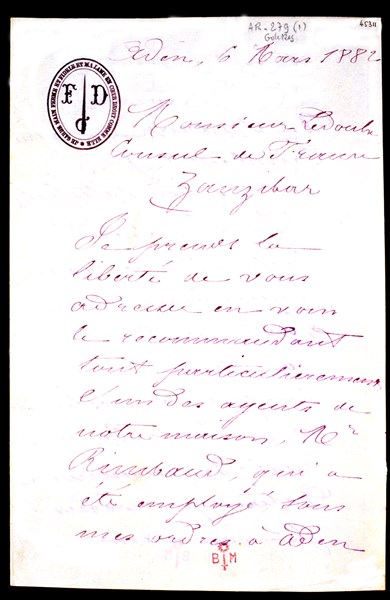 AR-279 (1)
Aden, 6 Mars 1882
F D
Monsieur Ledoulx
Consul de France
Zanzibar
Je prends la
liberté de vous
adresser en vous
le recommandant
tout particulièrement
l'un des agents de
notre maison, Mr
Rimbaud, qui a
été employé sous
mes ordres à Aden
B M